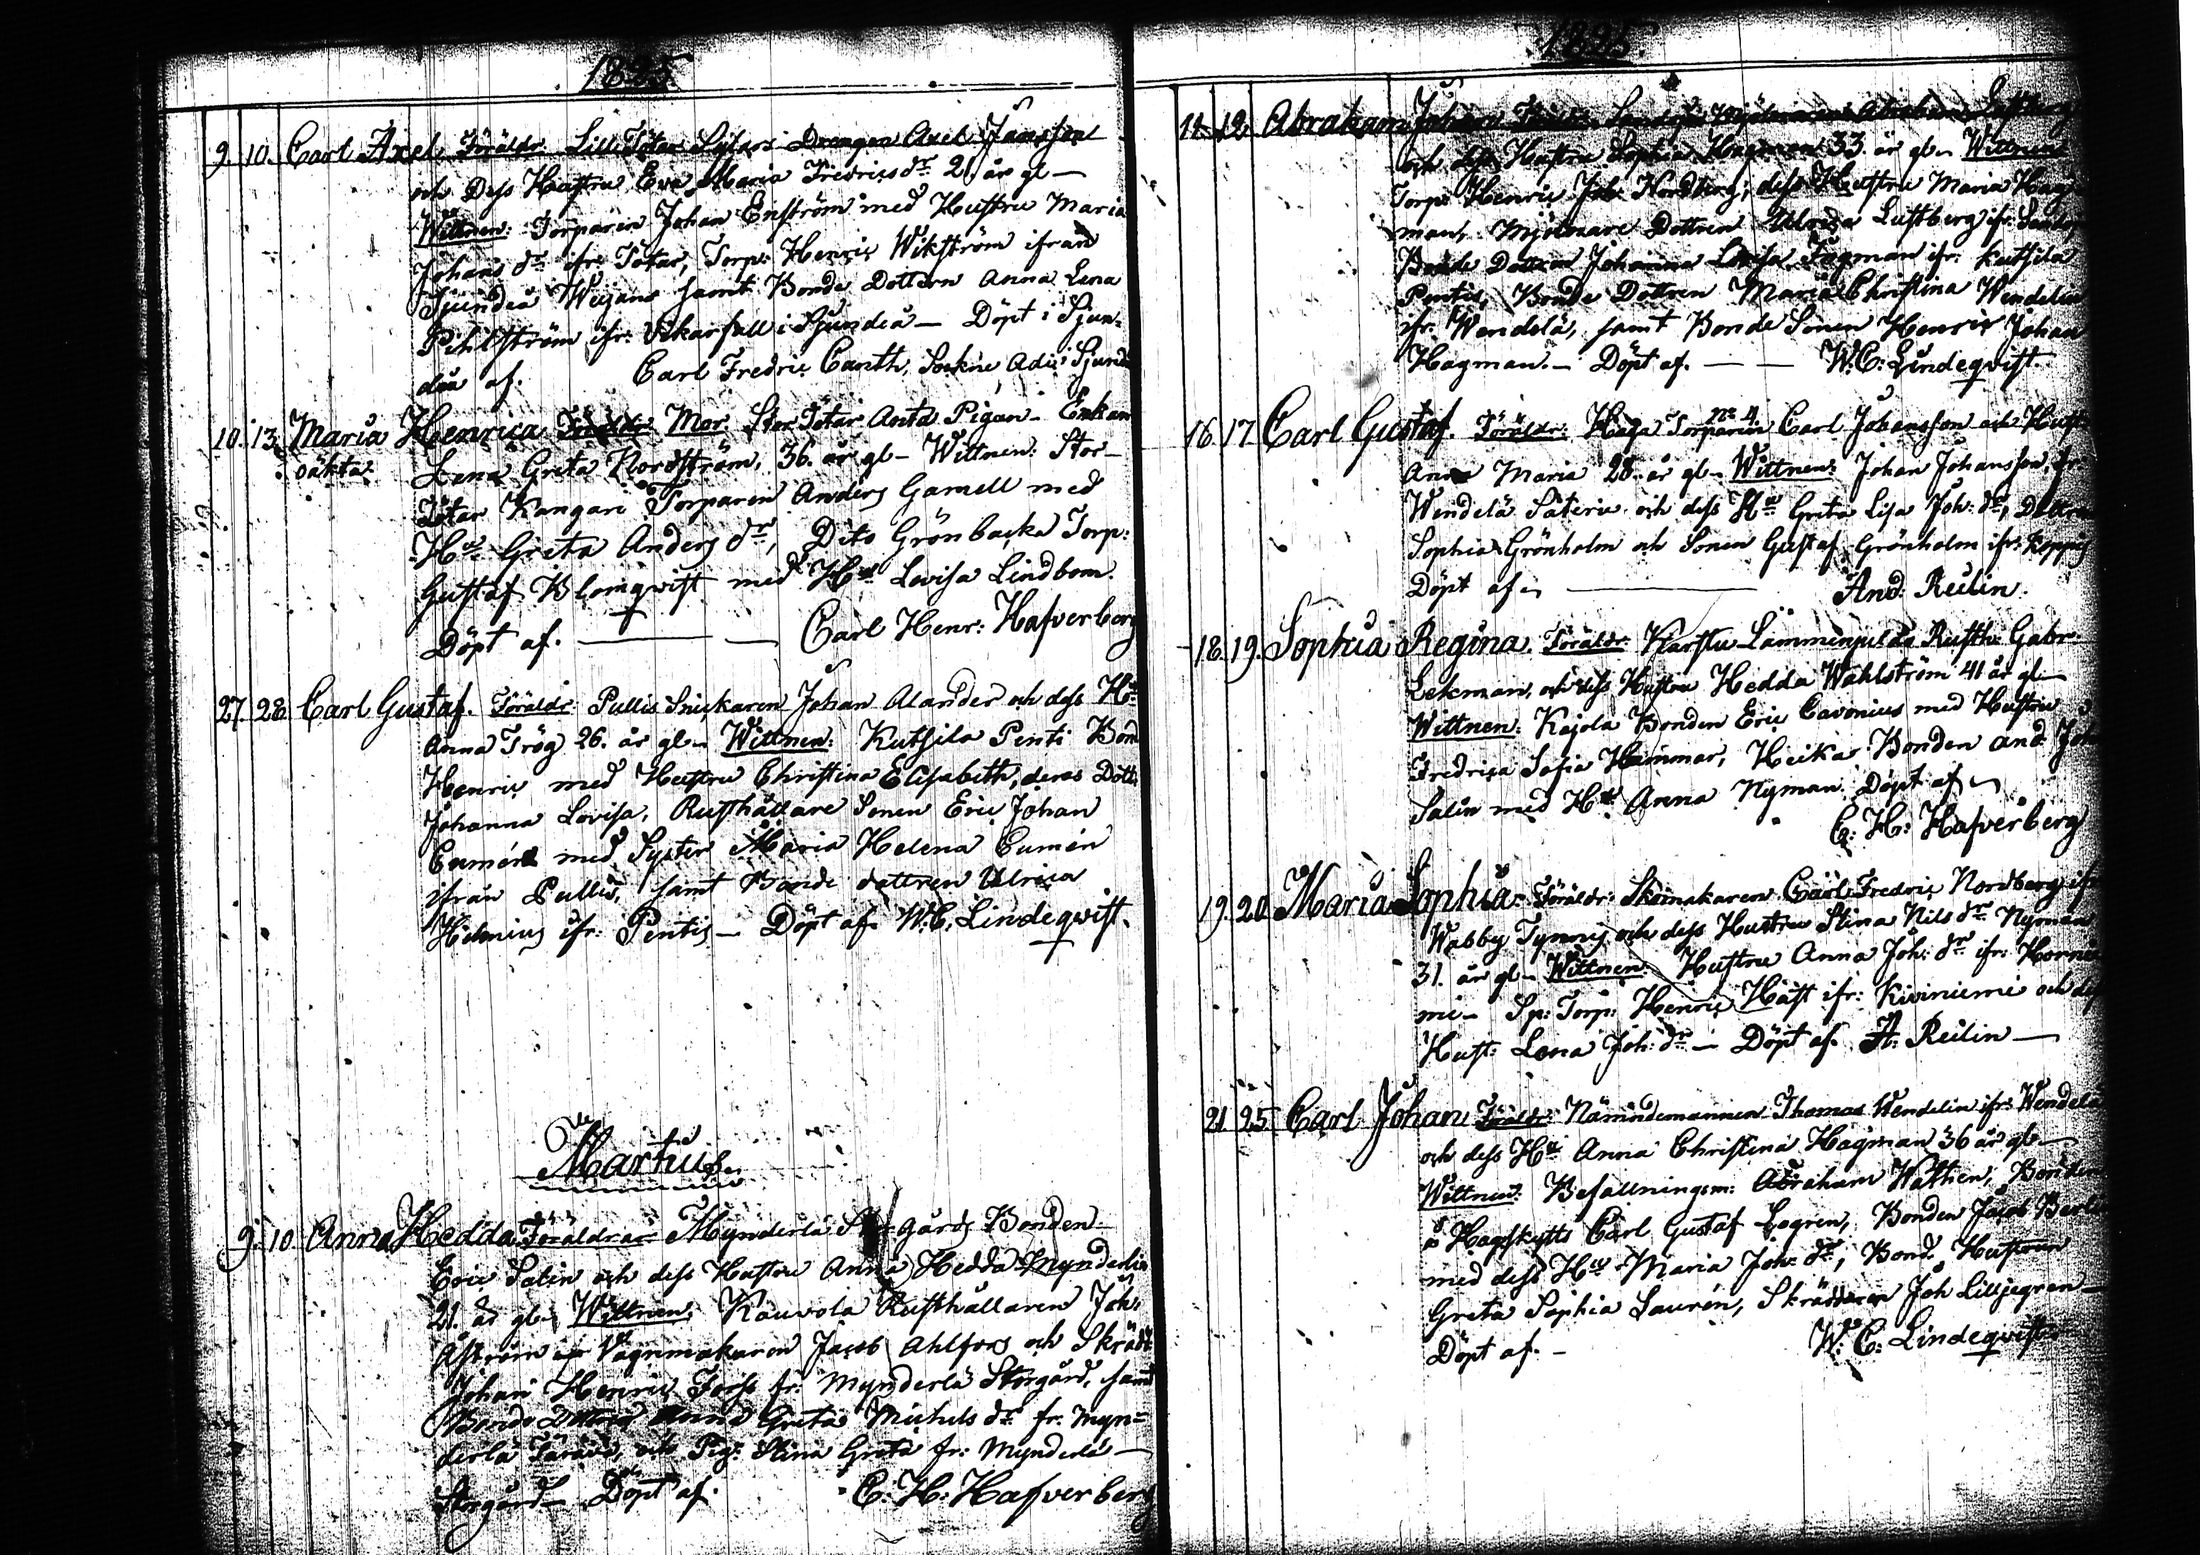 1825
9. 10. Carl Axel. Föräldr. Lill Tötar Drengen Axel Jansson
och Dess Hustru Eva Maria Fredricsdr 21. år gl—
Wittnen: Torparen Johan Enström med Hustru Maria
Johans dr ifr. Tötar, Torp: Henric Wikström ifrån
Sjundeå Weijans samt Bonde Dottern Anna Lena
Pihlström ifr: Vikarfall i Sjundeå — Döpt i Sjun-
deå af. Carl Fredric Canth, Sockne Adj: i Sjund
10. 13. Maria Henrica Föräldr. Mor. Stor Tötar Anta Pigan – Enkan
oäkta. Lena Greta Nordström, 36. år gl – Wittnen: Stor-
Tötar Kangari Torparen Anders Gamell med
Hu Greta Anders dr, Dito Grönbacka Torp:
Gustaf Blomqvist med Hu Lovisa Lindbom.
Döpt af. — — Carl Henr: Hafverberg
27. 28. Carl Gustaf. Föräldr. Pullis Snickaren Johan Alander och dess Hu
Anna Trög 26. år gl – Wittnen: Kutsila Penti Bond
Henric med Hustru Christina Elisabeth, deras Dott
Johanna Lovisa, Rusthållare Sonen Eric Johan
Cumén med Syster Maria Helena Cumén
ifrån Pullis, samt Bonde dottren Ulrica
Helenius ifr: Pentis — Döpt af. W. C. Lindeqvist.
Martius.
9. 10. Anna Hedda Föräldrar Mynderlä gårds Bonden
Eric Salin och dess Hustru Anna Hedda Mynderlin
21. år gl – Wittnen. Kauvola Rusthållaren Joh:
Åström Vagnmakaren Jacob Ahlfors och Skrädd
Johan Henric Forss fr: Mynderlä Storgård, samt
Bonde Dottren Anna Greta Michels dr fr. Myn=
derlä och Pig: Stina Greta fr: Mynderlä —
Storgård — Döpt af. C. H. Hafverberg
1825.
11. 12. Abraham Johan Föräldr. Mjölnaren Abraham Luftberg
och dess Hustru Sophia Hagman 33. år gl – Wittnen
Torp: Henric Joh: Nordberg, dess Hustru Maria Hag
man, Mjölnare Dottren Ulrica Luftberg ifr:
Bonde Dottren Johanna Lovisa Fagman ifr: Kutsila
Pentis, Bonde Dottren Maria Christina Wendelin
ifr: Wendelä, samt Bonde Sonen Henric Johan
Hagman. — Döpt af. — — W: C: Lindeqvist.
16. 17. Carl Gustaf. Föräldr: Haga Torparen No 4 Carl Johansson och Hust
Anna Maria 28. år gl – Wittnen: Johan Johansson, fr
Wendelä Säteri och dess Hu Greta Lisa Joh: dr, Dottren
Sophia Grönholm och Sonen Gustaf Grönholm ifr:
Döpt af — And: Reilin.
18. 19. Sophia Regina. Föräldr: Karstu Rusth: Gabr
Lekman, och dess Hustru Hedda Wahlström 41 år gl—
Wittnen: Kajola Bonden Eric Cavonius med Hustru
Fredrica Sofia Hammar, Heika Bonden And: Joh
Salin med Hu Anna Nyman Döpt af
C: H: Hafverberg
19. 20. Maria Sophia. Föräldr: Skomakaren Carl Fredric Nordberg ifr
Wabby och dess Hustru Stina Nils dr Nyman
31. år gl – Wittnen: Hustru Anna Joh: dr ifr: Hornie
mi – Sp: Torp: Henric Häst ifr: Kiviniemi och dess
Hust: Lena Joh: dr — Döpt af A: Reilin —
21. 25. Carl Johan Föräldr: Nämndemannen Thomas Wendelin ifr: Wendelä
och dess Hu Anna Christina Hagman 36 år gl—
Wittnen: Befallningsm: Abraham Watthen, Bonden
Carl Gustaf Logren, Bonden Jacob
med dess Hu Maria Joh: dr, Bond. Hustrun
Greta Sophia Laurén, Skräddaren Joh Lilljegren—
Döpt af. — W: C: Lindeqvist